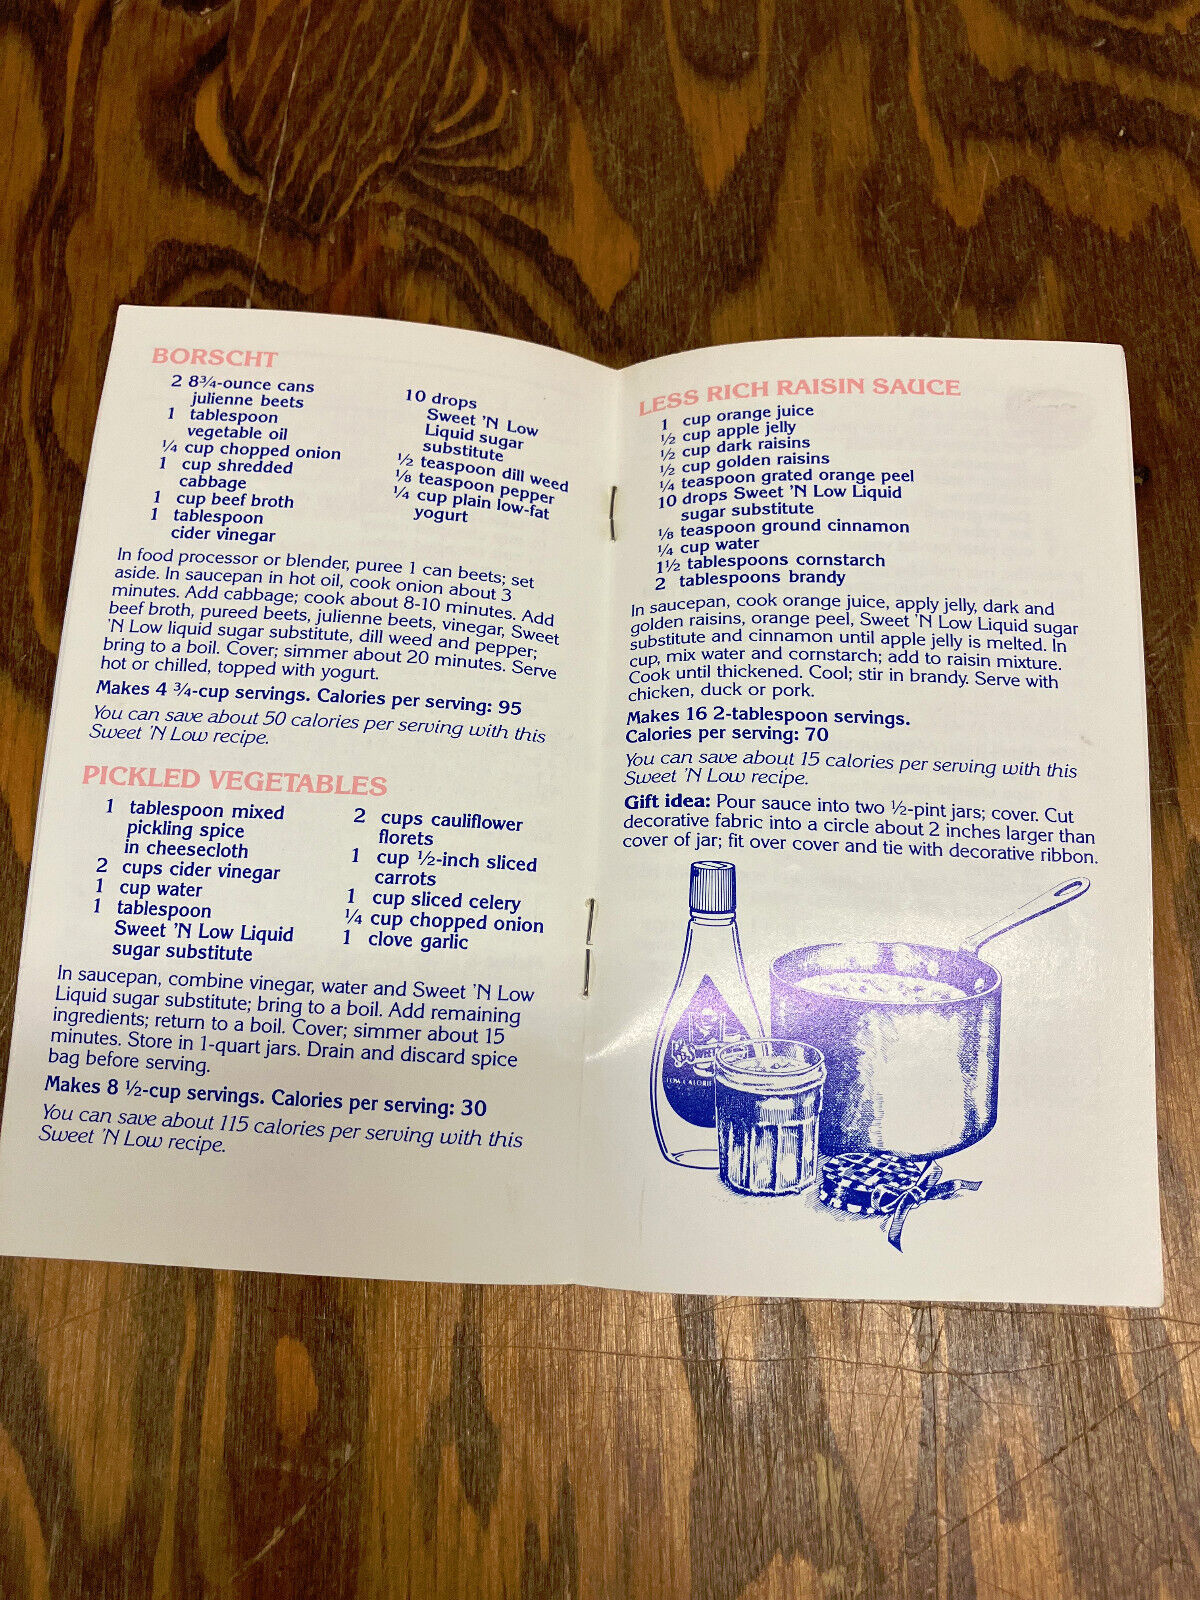 BORSCHT
2 8¾-ounce cans
julienne beets
1 tablespoon
vegetable oil
¼ cup chopped onion
1 cup shredded
cabbage
1 cup beef broth
1 tablespoon
cider vinegar
10 drops
Sweet 'N Low
Liquid sugar
substitute
½ teaspoon dill weed
⅛ teaspoon pepper
¼ cup plain low-fat
yogurt
In food processor or blender, puree 1 can beets; set
aside. In saucepan in hot oil, cook onion about 3
minutes. Add cabbage; cook about 8-10 minutes. Add
beef broth, pureed beets, julienne beets, vinegar, Sweet
'N Low liquid sugar substitute, dill weed and pepper;
bring to a boil. Cover; simmer about 20 minutes. Serve
hot or chilled, topped with yogurt.
Makes 4 ¾-cup servings. Calories per serving: 95
You can save about 50 calories per serving with this
Sweet 'N Low recipe.
PICKLED VEGETABLES
1 tablespoon mixed
pickling spice
in cheesecloth
2 cups cider vinegar
1 cup water
1 tablespoon
Sweet 'N Low Liquid
sugar substitute
2 cups cauliflower
florets
1 cup ½-inch sliced
carrots
1 cup sliced celery
¼ cup chopped onion
1 clove garlic
In saucepan, combine vinegar, water and Sweet 'N Low
Liquid sugar substitute; bring to a boil. Add remaining
ingredients; return to a boil. Cover; simmer about 15
minutes. Store in 1-quart jars. Drain and discard spice
bag before serving.
Makes 8 ½-cup servings. Calories per serving: 30
You can save about 115 calories per serving with this
Sweet 'N Low recipe.
LESS RICH RAISIN SAUCE
1 cup orange juice
½ cup apple jelly
½ cup dark raisins
½ cup golden raisins
¼ teaspoon grated orange peel
10 drops Sweet 'N Low Liquid
sugar substitute
⅛ teaspoon ground cinnamon
¼ cup water
1½ tablespoons cornstarch
2 tablespoons brandy
In saucepan, cook orange juice, apply jelly, dark and
golden raisins, orange peel, Sweet 'N Low Liquid sugar
substitute and cinnamon until apple jelly is melted. In
cup, mix water and cornstarch; add to raisin mixture.
Cook until thickened. Cool; stir in brandy. Serve with
chicken, duck or pork.
Makes 16 2-tablespoon servings.
Calories per serving: 70
You can save about 15 calories per serving with this
Sweet 'N Low recipe.
Gift idea: Pour sauce into two ½-pint jars; cover. Cut
decorative fabric into a circle about 2 inches larger than
cover of jar; fit over cover and tie with decorative ribbon.
SWEET
LOW CALORIE